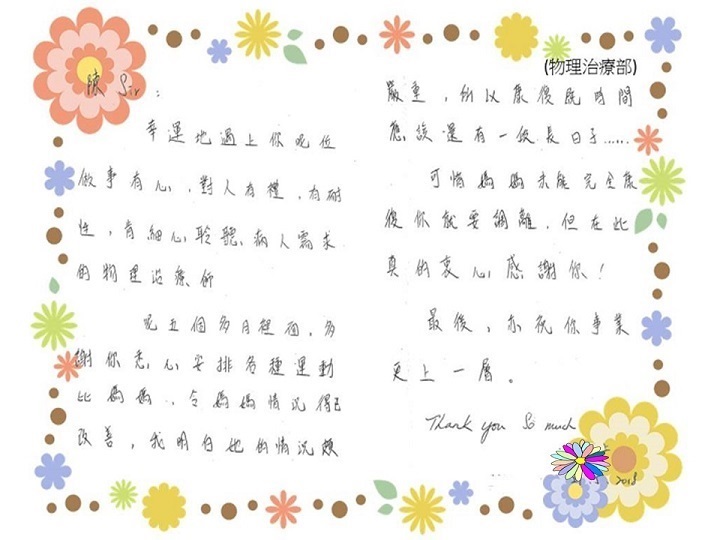 陳 Sir：
幸運地遇上你呢位
做事有心，對人有禮，有耐
性，肯細心聆聽病人需求
的物理治療師
呢五個多月裡面，多
謝你悉心安排各種運動
比媽媽，令媽媽情況得到
改善，我明白她的情況頗
(物理治療部)
嚴重，所以康復既時間
應該還有一段長日子......
可惜媽媽未能完全康
復你就要調離，但在此
真的衷心感謝你！
最後，亦祝你事業
更上一層。
Thank you so much
2018